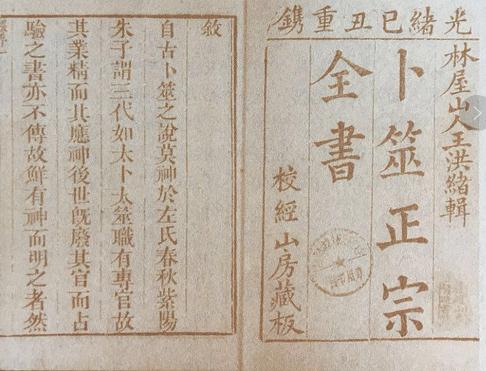 光緒己丑重鐫
林屋山人王洪緒輯
卜筮正宗
全書
校經山房藏板
敘
自古卜筮之說莫神於左氏春秋紫陽
朱子謂三代如太卜太筮職有專官故
其業精而其應神後世既廢其官而占
驗之書亦不傳故鮮有神而明之者然